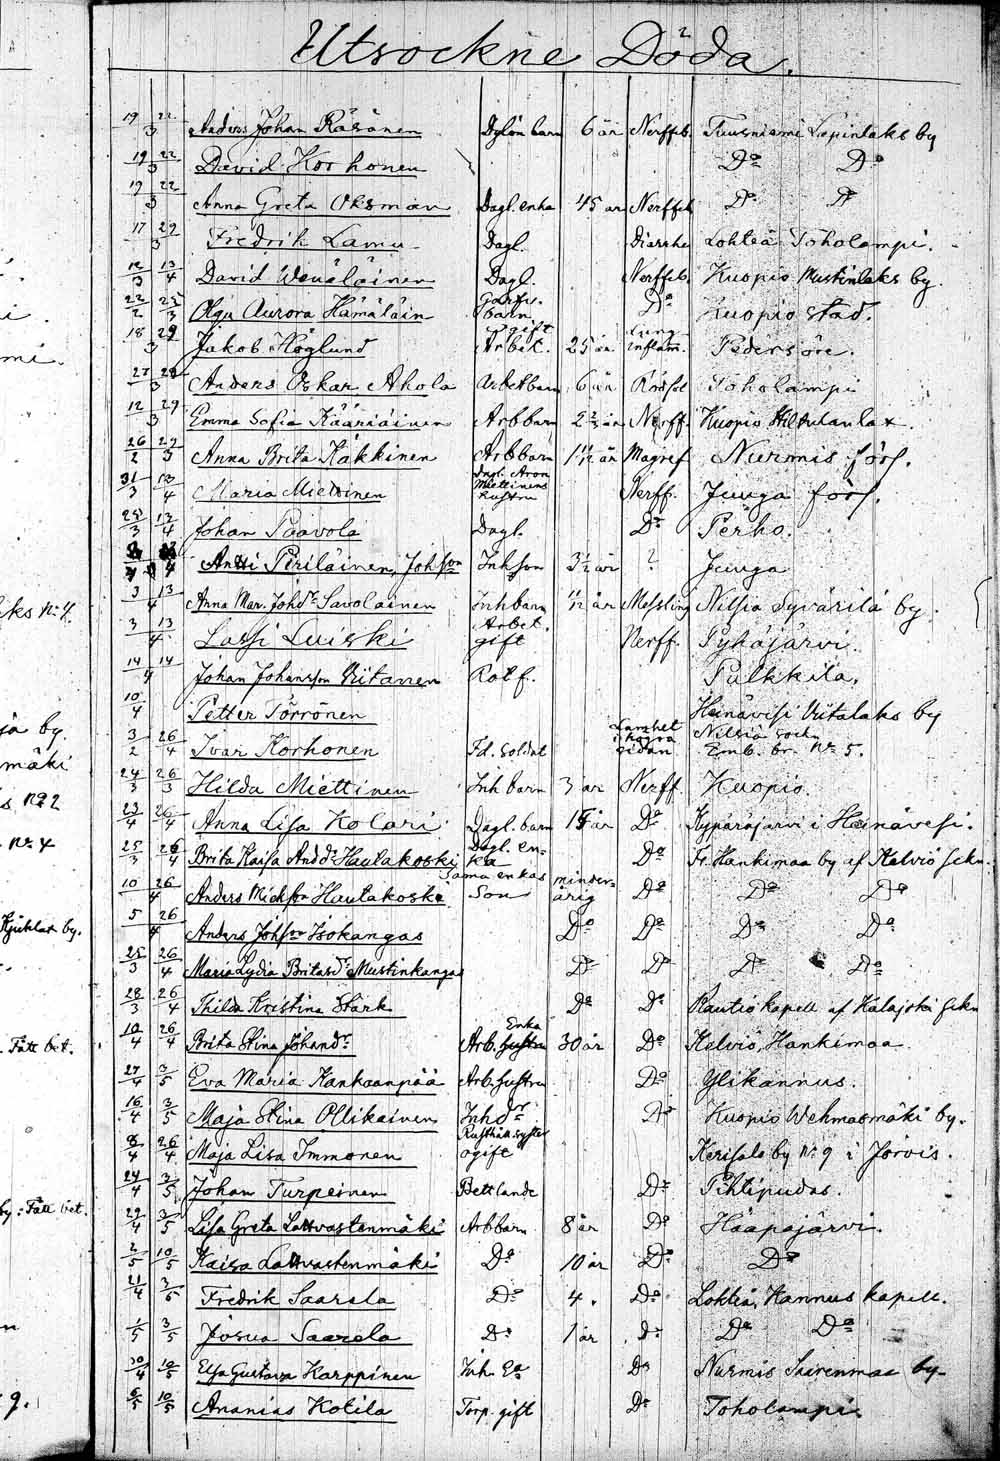 Utsockne Döda.
19 22/3 Anders Johan Räsänen 6 år Nerffeb. Tuusniemi Lapinlaks by
19 22/3 David Korhonen Do Do
19 22/3 Anna Greta Oksman Dagl. enka 45 år Nerffeb Do Do
17 29/3 Fredrik Lamu Dagl. Diarrhe Lohteå Toholampi.
12/3 13/4 David Wänäläinen Dagl. Nerffeb. Kuopio Mustinlaks by.
22/2 25/3 Olga Aurora Hämäläin barn Do Kuopio stad.
18 29/3 Jakob Höglund Arbet. ogift 25 år Lung inflam. Pedersöre.
27 28/3 Anders Oskar Ahola Arbetbarn 6 år Toholampi
12 29/3 Emma Sofia Kääriäinen Arbbarn Nerff. Kuopio
26/2 29/3 Anna Brita Käkkinen Arbbarn Magref Nurmis förs.
31/3 13/4 Maria Miettinen Dagl. Aron Miettinens hustru Nerff. Juuga förs.
28/3 13/4 Johan Paavola Dagl. Do Perho.
Antti Piriläinen, Johsson Inhson 3 1/2 år ? Juuga
3 13/4 Anna Mar. Johdr. Savolainen Inhbarn 11/12 år Messling Nilsiä Syvärilä by.
3 13/4 Lassi Luiski Arbet. gift Nerff. Pyhäjärvi.
14 14/4 Johan Johansson Viitanen Rotf. Pulkkila.
10/4 Petter Törrönen Heinävesi Viitalaks by
3/2 26/4 Ivar Korhonen Fd. Soldat Lamhet i högra sidan Nilsiä sockn Emb. br. No 5.
24/3 26/3 Hilda Miettinen Inh barn 3 år Nerff Kuopio.
23/4 26/4 Anna Lisa Kolari Dagl. barn 15 år Do i Heinävesi.
25/3 26/4 Brita Kaisa Anddr Hautakoski Dagl. en-ka Do Fr. Hankimaa by af Kelviö sckn.
10 26/4 Anders Mickson Hautakoski Sama enkas Son minder-årig Do Do Do
5 26/4 Anders Johsson Isokangas Do Do Do Do
25/3 26/4 Maria Lydia Britasdr Mustinkangas Do Do Do Do
28/3 26/4 Thilda Kristina Stark Do Do Rautio kapell af Kalajoki sckn
10/4 26/4 Brita Stina Johandr. Arb. Enka 30 år Do Kelviö, Hankimaa.
27/4 3/5 Eva Maria Kankaanpää Arb. hustru Do Ylikannus.
16/4 3/5 Maja Stina Ollikainen Inhdr Do Kuopio Wehmasmäki by.
8/4 26/4 Maja Lisa Immonen ogift Kerisalo by No 9 i Jorvis.
24/4 3/5 Johan Turpeinen Bettlande Do Pihtipudas.
29/4 3/5 Lisa Greta Lattvastenmäki Arbbarn 8 år Do Haapajärvi.
2/5 10/5 Kaisa Lattvastenmäki Do 10 år Do Do
21/4 3/5 Fredrik Saarela Do 4 . Do Lohteå, Kannus kapell.
1/5 3/5 Josua Saarela Do 1 år Do Do Do
30/4 10/5 Elsa Gustava Karppinen Inh. Do Nurmis Sairenmaa by
6/5 10/5 Ananias Kotila Torp. gift Do Toholampi.
by.
mäki
No 2
No 4
by.
Fått bet.
by: Fått bet.
9.